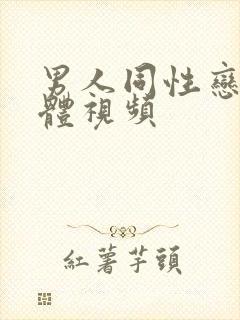 男人同性戀
體視頻
紅薯芋頭